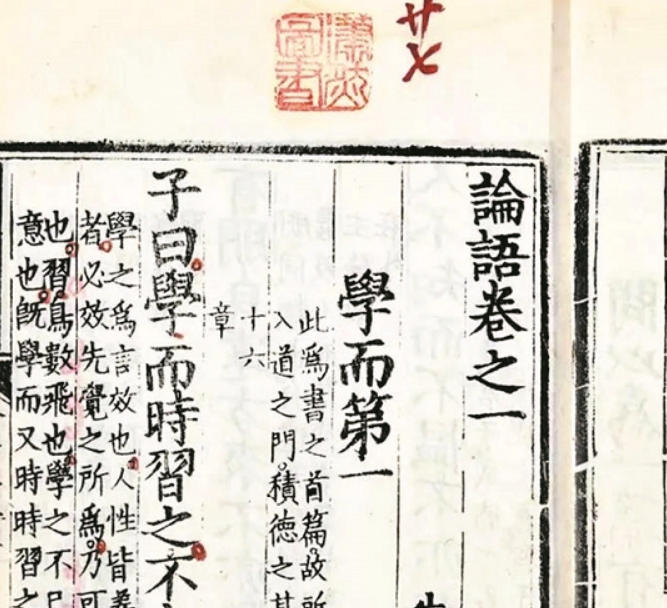 圖書
論語卷之一
學而第一
此爲書之首篇。故所
入道之門。積德之
十六
章
子曰學而時習之不
學之爲言效也人性皆善
者必效先覺之所爲乃可
也習鳥數飛也學之不已
意也旣學而又時時習之